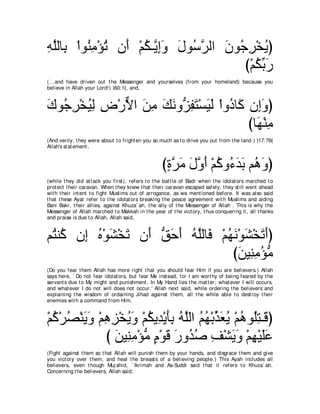 ﴿يُخْرِجُونَ الرَّسُولَ وَإِيَّـكُمْ أَن تُؤْمِنُواْ بِاللَّهِ
رَبِّكُمْ﴾
(...and have driven out the Messenger and yourselves (from your homeland) because you
believe in Allah your Lord!) )60:1(, and,
﴿وَإِن كَادُواْ لَيَسْتَفِزُّونَكَ مِنَ الاٌّرْضِ لِيُخْرِجُوكَ
مِنْهَا﴾
(And verily, they were about to frighten you so much as to drive you out from the land.) )17:76(
Allah's statement,
﴿وَهُم بَدَءُوكُمْ أَوَّلَ مَرَّةٍ﴾
(while they did attack you first), refers to the battle of Badr when the idolators marched to
protect their caravan. When they knew that their caravan escaped safely, they still went ahead
with their intent to fight Muslims out of arrogance, as we mentioned before. It was also said
that these Ayat refer to the idolators breaking the peace agreement with Muslims and aiding
Bani Bakr, their allies, against Khuza`ah, the ally of the Messenger of Allah . This is why the
Messenger of Allah marched to Makkah in the year of the victory, thus conquering it, all thanks
and praise is due to Allah. Allah said,
﴿أَتَخْشَوْنَهُمْ فَاللَّهُ أَحَقُّ أَن تَخْشَوْهُ إِن كُنتُم
مُّؤُمِنِينَ﴾
(Do you fear them Allah has more right that you should fear Him if you are believers.) Allah
says here, `Do not fear idolators, but fear Me instead, for I am worthy of being feared by the
servants due to My might and punishment. In My Hand lies the matter; whatever I will occurs,
and whatever I do not will does not occur.' Allah next said, while ordering the believers and
explaining the wisdom of ordaining Jihad against them, all the while able to destroy their
enemies with a command from Him,
﴿قَـتِلُوهُمْ يُعَذِّبْهُمُ اللَّهُ بِأَيْدِيكُمْ وَيُخْزِهِمْ وَيَنْصُرْكُمْ
عَلَيْهِمْ وَيَشْفِ صُدُورَ قَوْمٍ مُّؤْمِنِينَ ﴾
(Fight against them so that Allah will punish them by your hands, and disgrace them and give
you victory over them, and heal the breasts of a believing people,) This Ayah includes all
believers, even though Mujahid, `Ikrimah and As-Suddi said that it refers to Khuza`ah.
Concerning the believers, Allah said;